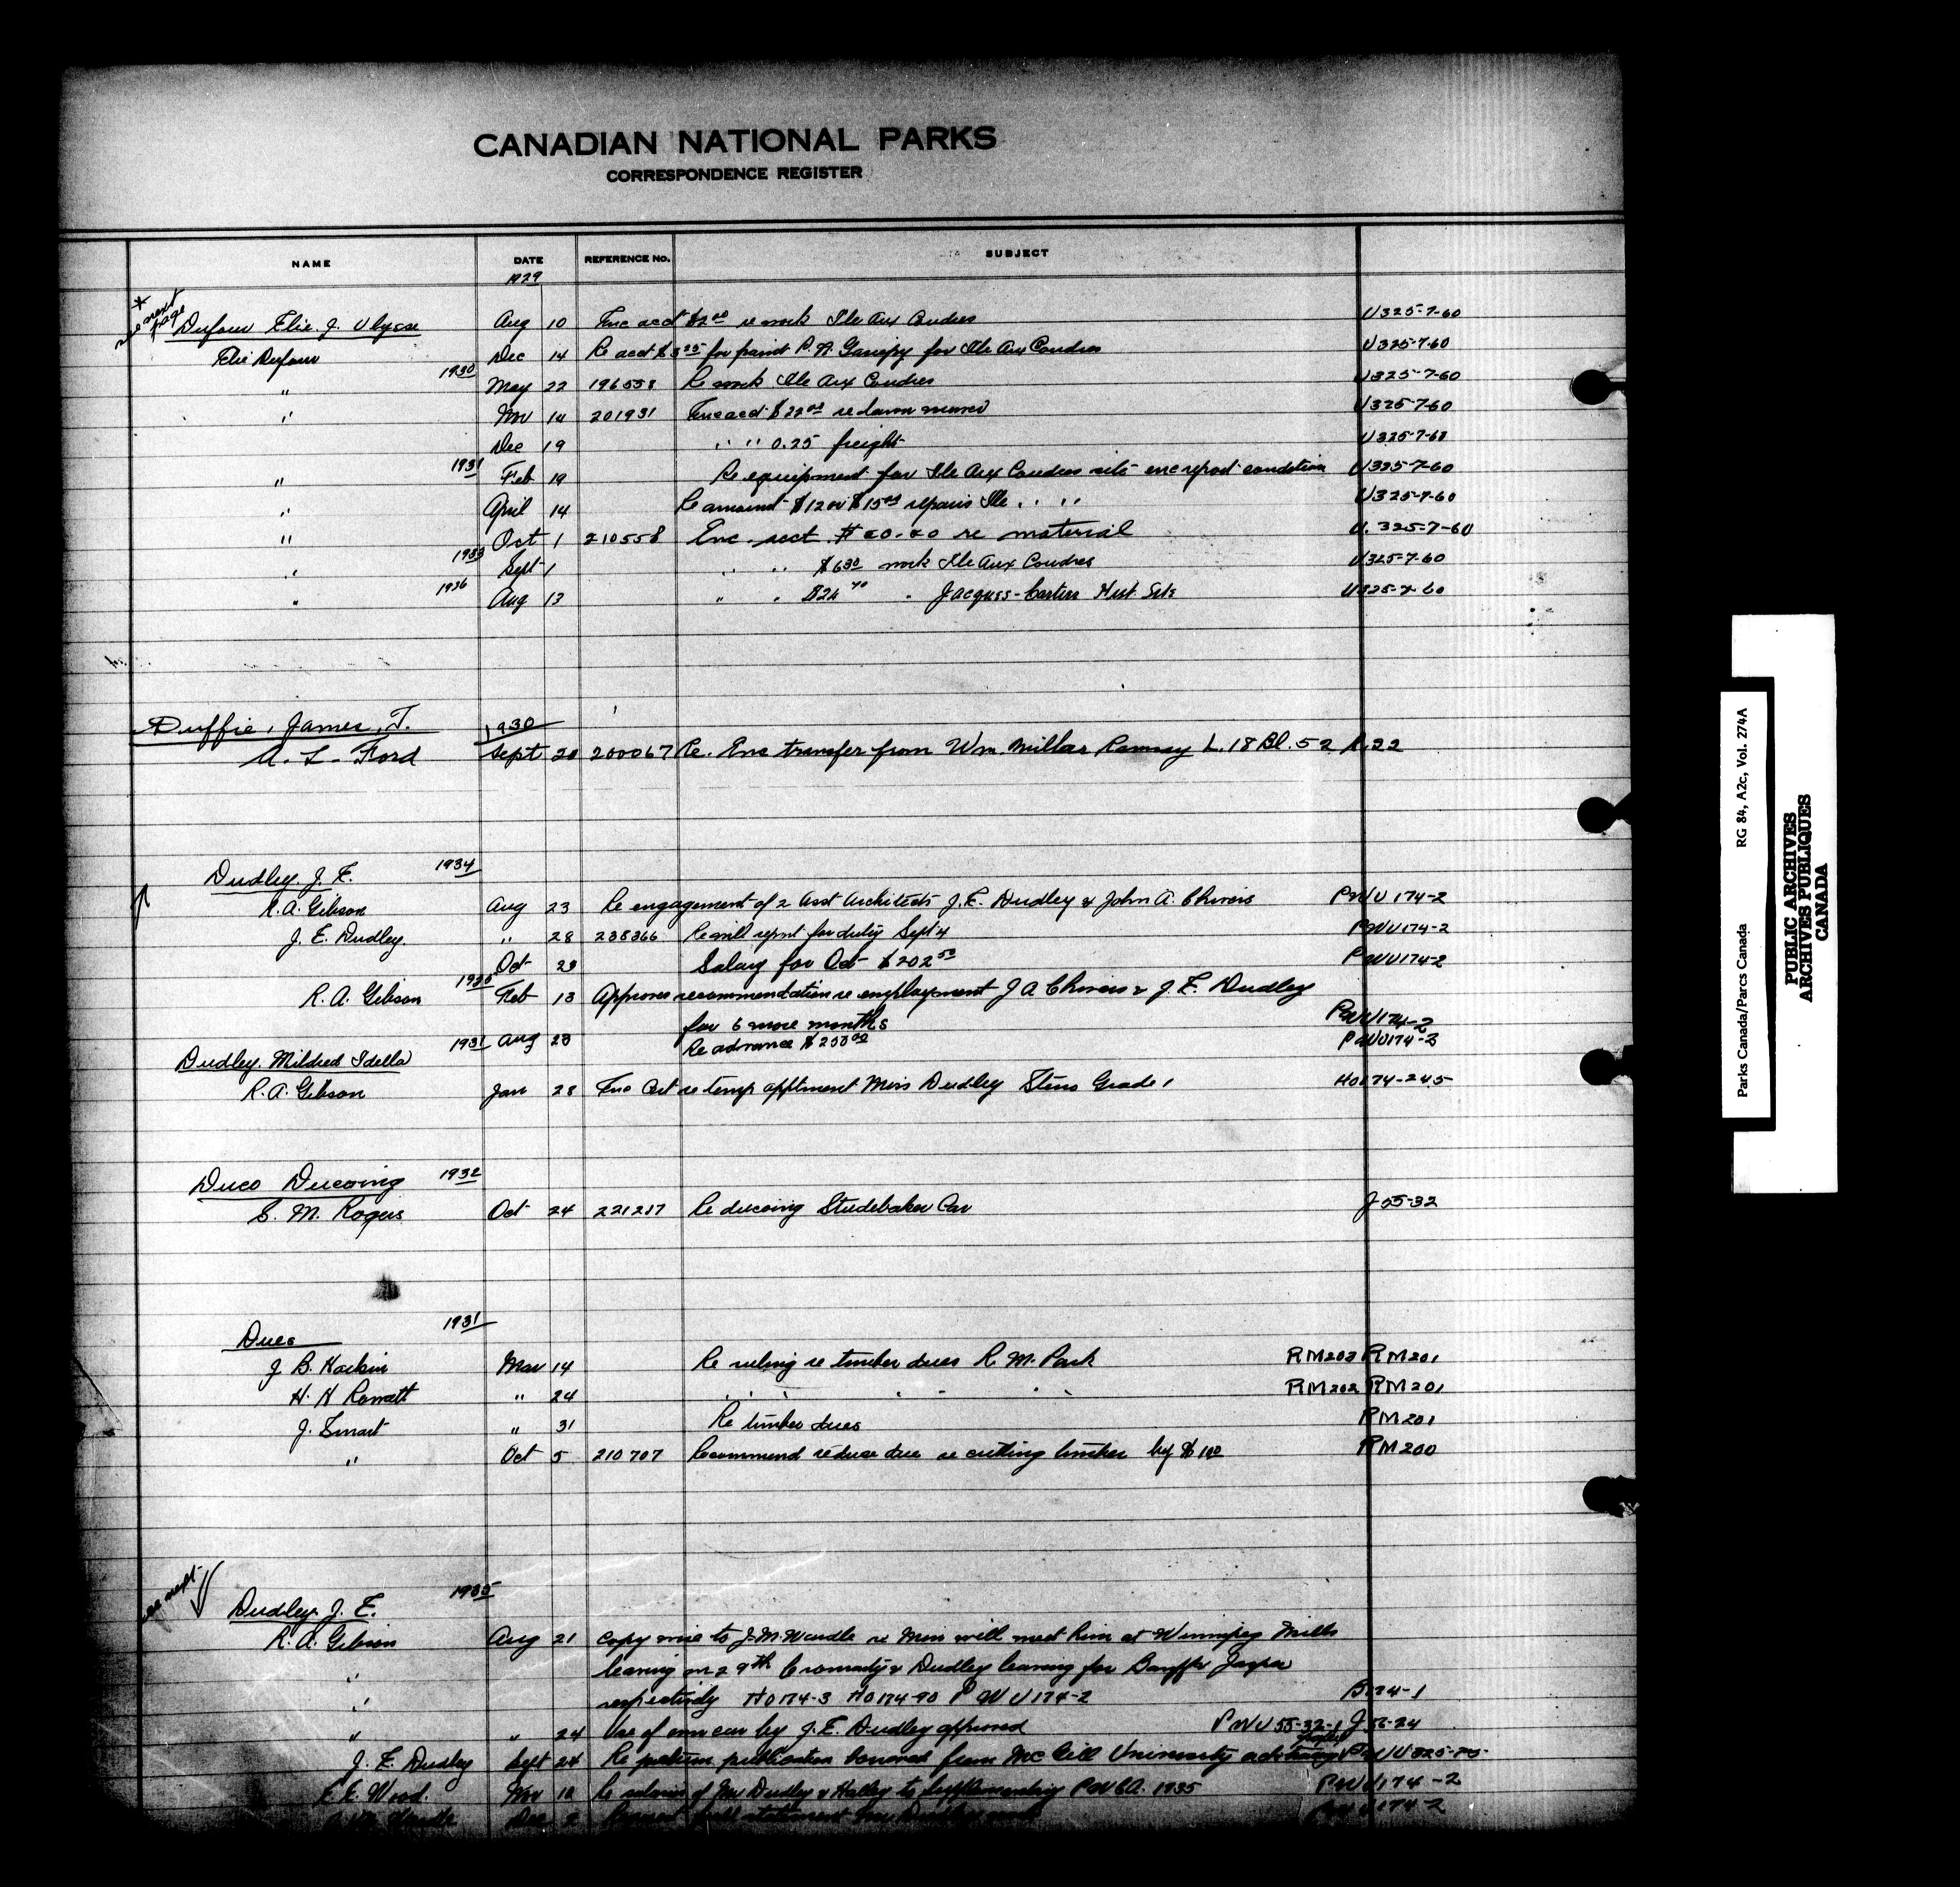 CANADIAN NATIONAL PARKS
CORRESPONDENCE REGISTER
NAME DATE REFERENCE No. SUBJECT
1929
* see next page
Dufour Elie. J. Ulysse Aug 10 Enc acct $2.00 re work Ile Aux Coudres U325-7-60
Elie Dufour Dec 14 Re acct $3.25 for paint P. A. for Ile Aux Coudres U325-7-60
1930
" May 22 196558 Re work Ile Aux Coudres U325-7-60
" Nov 14 201931 Enc acct $22.00 re lawn mower U325-7-60
Dec 19 " " 0.25 freight U325-7-60
1931
" Feb 19 Re equipment for Ile Aux Coudres site enc report condition U325-7-60
" April 14 Re amount $12 or $15.00 repairs Ile " " U325-7-60
" Oct 1 210558 Enc. acct. re material U. 325-7-60
1933
" Sept 1 " " $6.30 work Ile Aux Coudres U325-7-60
1936
" Aug 13 " " " Jacques-Cartier Hist. Site U325-7-60
Duffie, James, T. 1930
A. L. Ford Sept 20 200067 Re. Enc transfer from Wm. Millar Ramsay L. 18 Bl. 52 R.22
Dudley. J. E. 1934
R.A. Gibson Aug 23 Re engagement of 2 Asst Architects J.E. Dudley & John A. Chivers PWU 174-2
J. E. Dudley. " 28 238366 Re will report for duty Sept 4 PWU174-2
Oct 29 Salary for Oct $202.50 PWU174-2
1935
R. A. Gibson Feb 13 Approves recommendation re employment J A Chivers & J. E. Dudley
for 6 more months PWU174-2
Aug 23 Re advance $250.00 PWU174-2
Dudley. Mildred Idella 1931
R.A. Gibson Jan 28 Enc Cert re temp apptment Miss Dudley Steno Grade 1 HO174-245
Duco Ducoing 1932
S. M. Rogers Oct 24 221217 Re ducoing Studebaker Car J 55-32
Dues 1931
J B. Harkin Mar 14 Re ruling re timber dues R. M. Park RM203 RM201
H. H Rowatt " 24 " " " " " " " RM202 RM201
J. Smart " 31 Re timber dues RM201
" Oct 5 210707 Recommend reduce due re cutting timber by $1.00 RM200
see next
Dudley. J. E. 1935
R. A. Gibson Aug 21 Copy wire to J.M. Wardle re Men will meet him at Winnipeg Mills
" leaving on 29th Cromarty & Dudley leaving for Banff & Jasper
" respectively HO174-3 HO174-90 PWU174-2 B174-1
" " 24 Use of own car by J. E. Dudley approved PWU 55-32-1 J 55-24
J. E. Dudley Sept 24 Re publication borrowed from McGill University
E.E. Wood. Nov 12 Re salaries of Mr Dudley & Halley to Supplementary PWCA. 1935 PWU174-2
Dec 2 PWU174-2
Parks Canada/Parcs Canada RG 84, A2c, Vol. 274A
PUBLIC ARCHIVES
ARCHIVES PUBLIQUES
CANADA